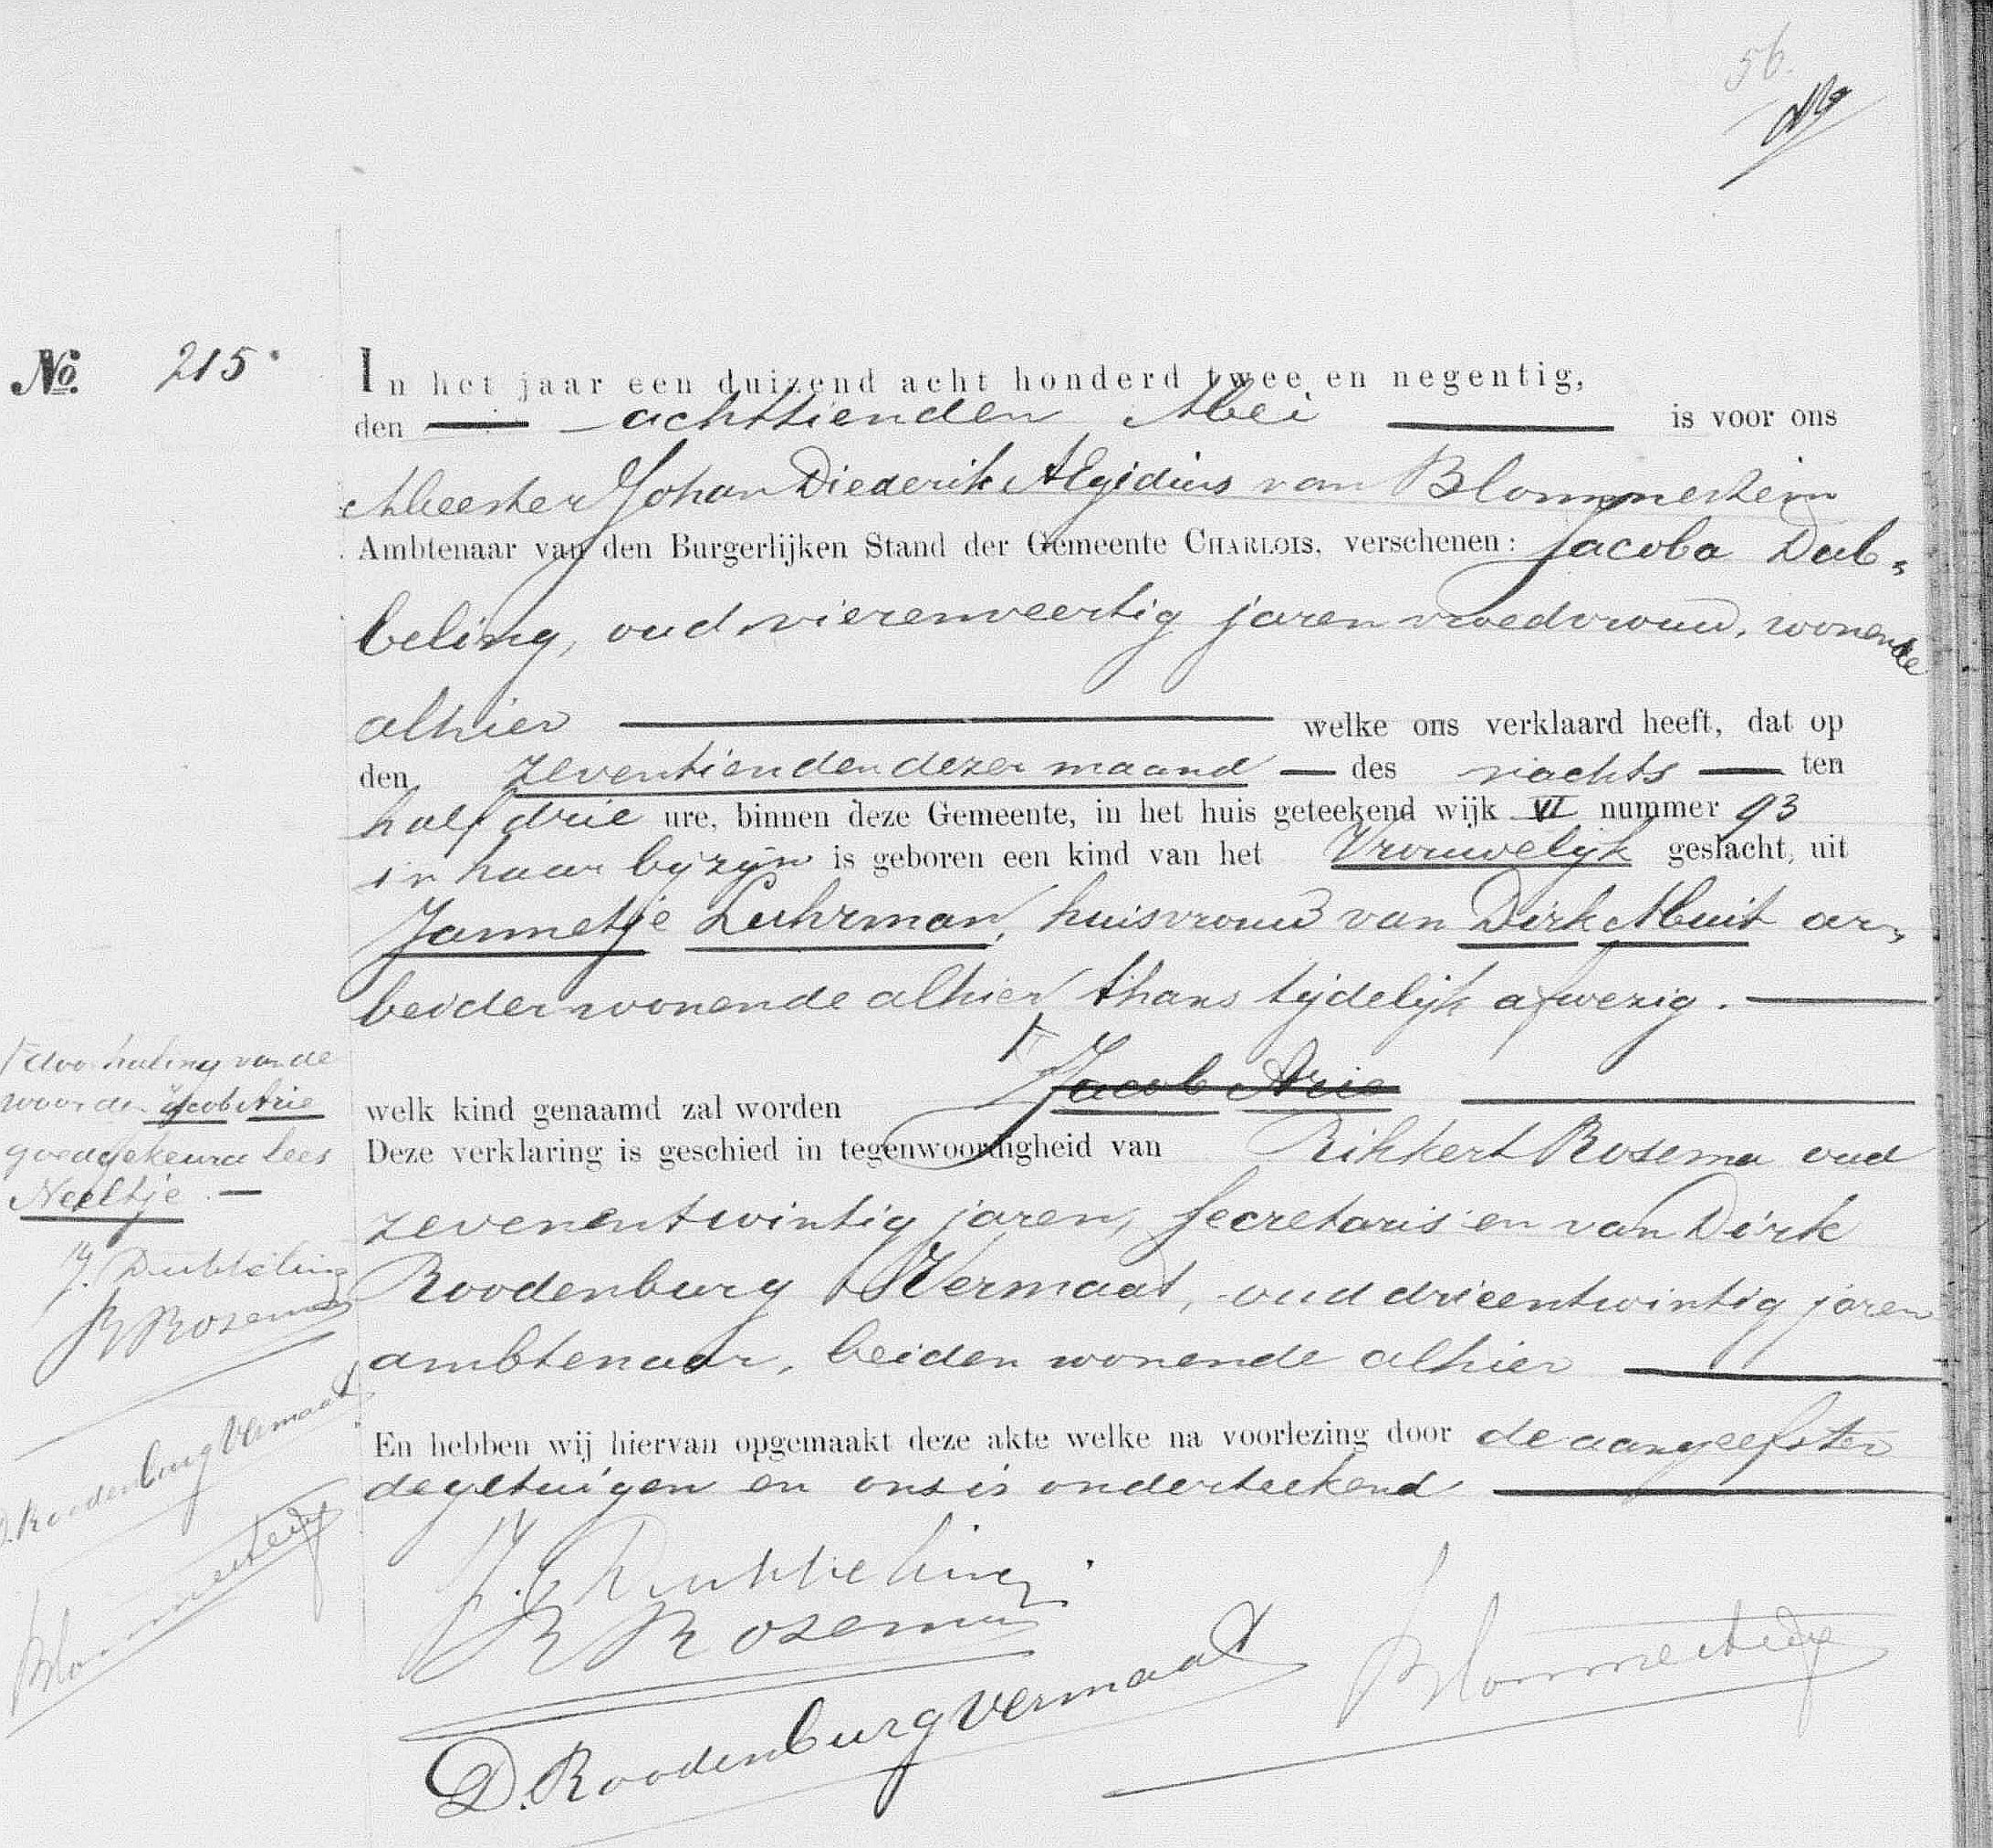 56.
No. 215.
In het jaar een duizend acht honderd twee en negentig,
den achttienden Mei is voor ons
Meester Johan Diederik AEgidius van Blommestein
Ambtenaar van den Burgerlijken Stand der Gemeente CHARLOIS, verschenen: Jacoba Dub-
beling, oud vierenveertig jaren vroedvrouw, wonende
alhier welke ons verklaard heeft, dat op
den zeventienden dezer maand des nachts ten
half drie ure, binnen deze Gemeente, in het huis geteekend wijk VI nummer 93
in haar bijzijn is geboren een kind van het Vrouwelijk geslacht, uit
Jannetje Luhrman, huisvrouw van Dirk Muit ar-
beider wonende alhier thans tijdelijk afwezig.
welk kind genaamd zal worden Jacob Arie
Deze verklaring is geschied in tegenwoordigheid van Rikkert Rosema oud
zevenentwintig jaren, Secretaris en van Dirk
Roodenburg Vermaat, oud drieentwintig jaren
ambtenaar, beiden wonende alhier
En hebben wij hiervan opgemaakt deze akte welke na voorlezing door de aangeefster
de getuigen en ons is onderteekend
J. Dubbeling
R Rosema
D. Roodenburg Vermaat
Blommestein
doorhaling van de
woorden Jacob Arie
goedgekeurd lees
Neeltje.
J. Dubbeling
R Rosema
D. Roodenburg Vermaat
Blommestein